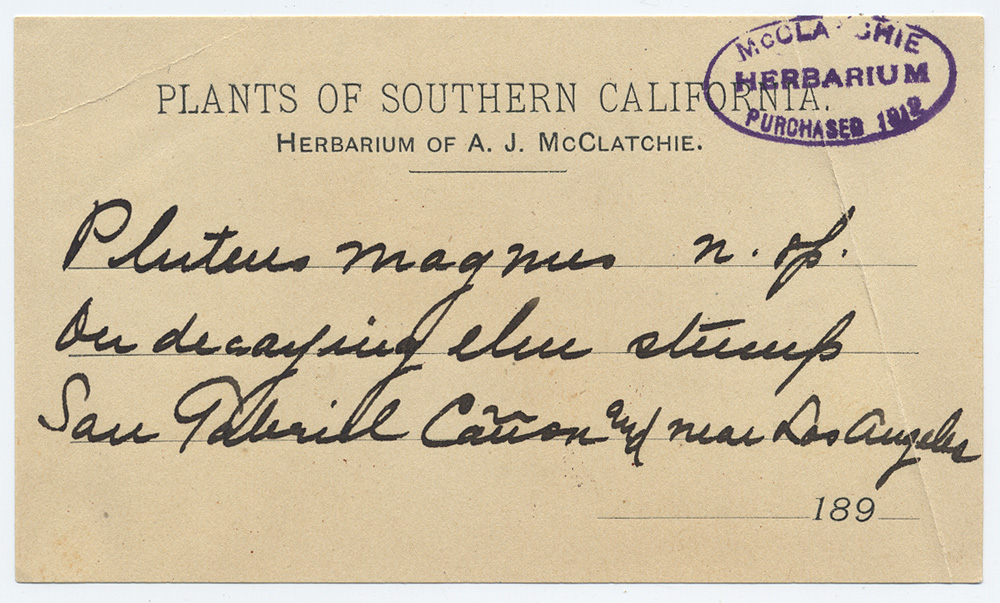 McCLATCHIE
HERBARIUM
PURCHASED 1912
PLANTS OF SOUTHERN CALIFORNIA.
HERBARIUM OF A. J. McCLATCHIE.
Pluteus magnus n. sp.
On decaying elm stump
San Gabriel Cañon and near Los Angeles
189